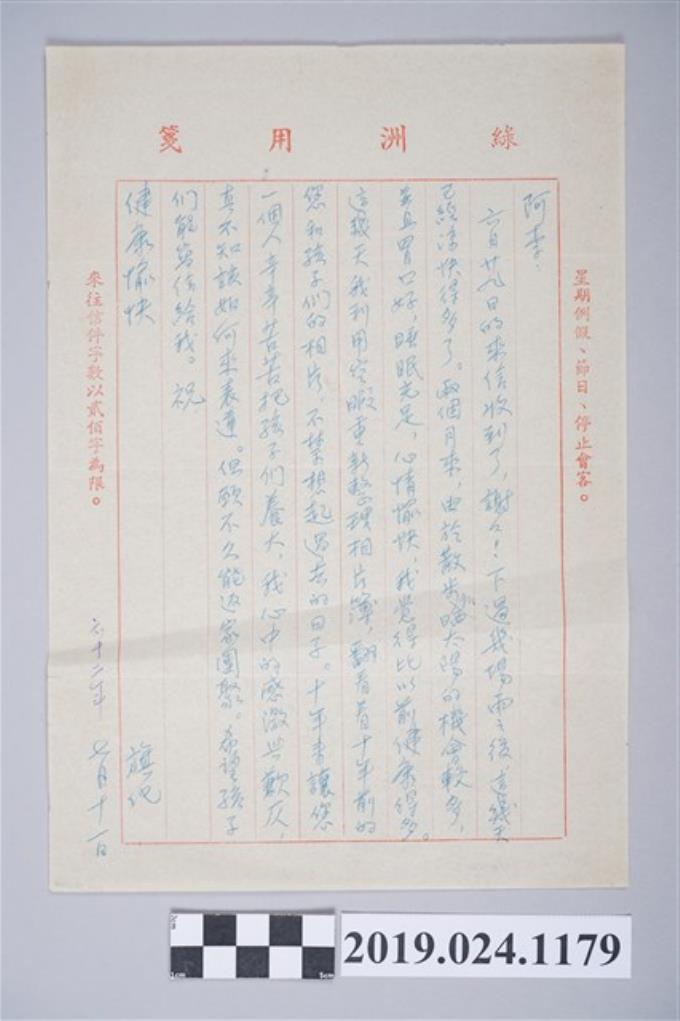 綠洲用箋
星期例假、節日、停止會客。
阿李：
六月廿九日的來信收到了，謝々！下過幾場雨之後，這幾天
已經涼快得多了。兩個月來，由於散步晒太陽的機會較多，
並且胃口好，睡眠充足，心情愉快，我覺得比以前健康得多。
這幾天我利用空暇重新整理相片簿，翻看着十年前的
您和孩子們的相片，不禁想起過去的日子。十年來讓您
一個人辛辛苦苦把孩子們養大，我心中的感激與歉仄，
真不知該如何來表達。但願不久能返家團聚。希望孩子
們能寫信給我。祝
健康愉快
旗
六十二年 七月十一日
來往信件字數以貳佰字為限。
2019.024.1179